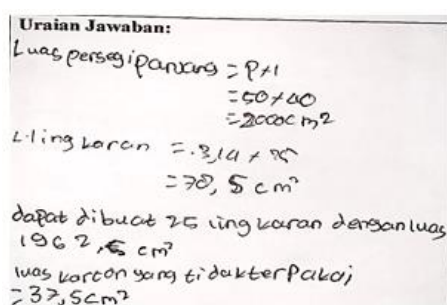 Uraian Jawaban:
Luas persegipanjang = p × l
= 50 × 40
= 2000 cm²
L. lingkaran = 3,14 × 25
= 78,5 cm²
dapat dibuat 25 lingkaran dengan luas
1962,5 cm²
luas karton yang tidak terpakai
= 37,5 cm²